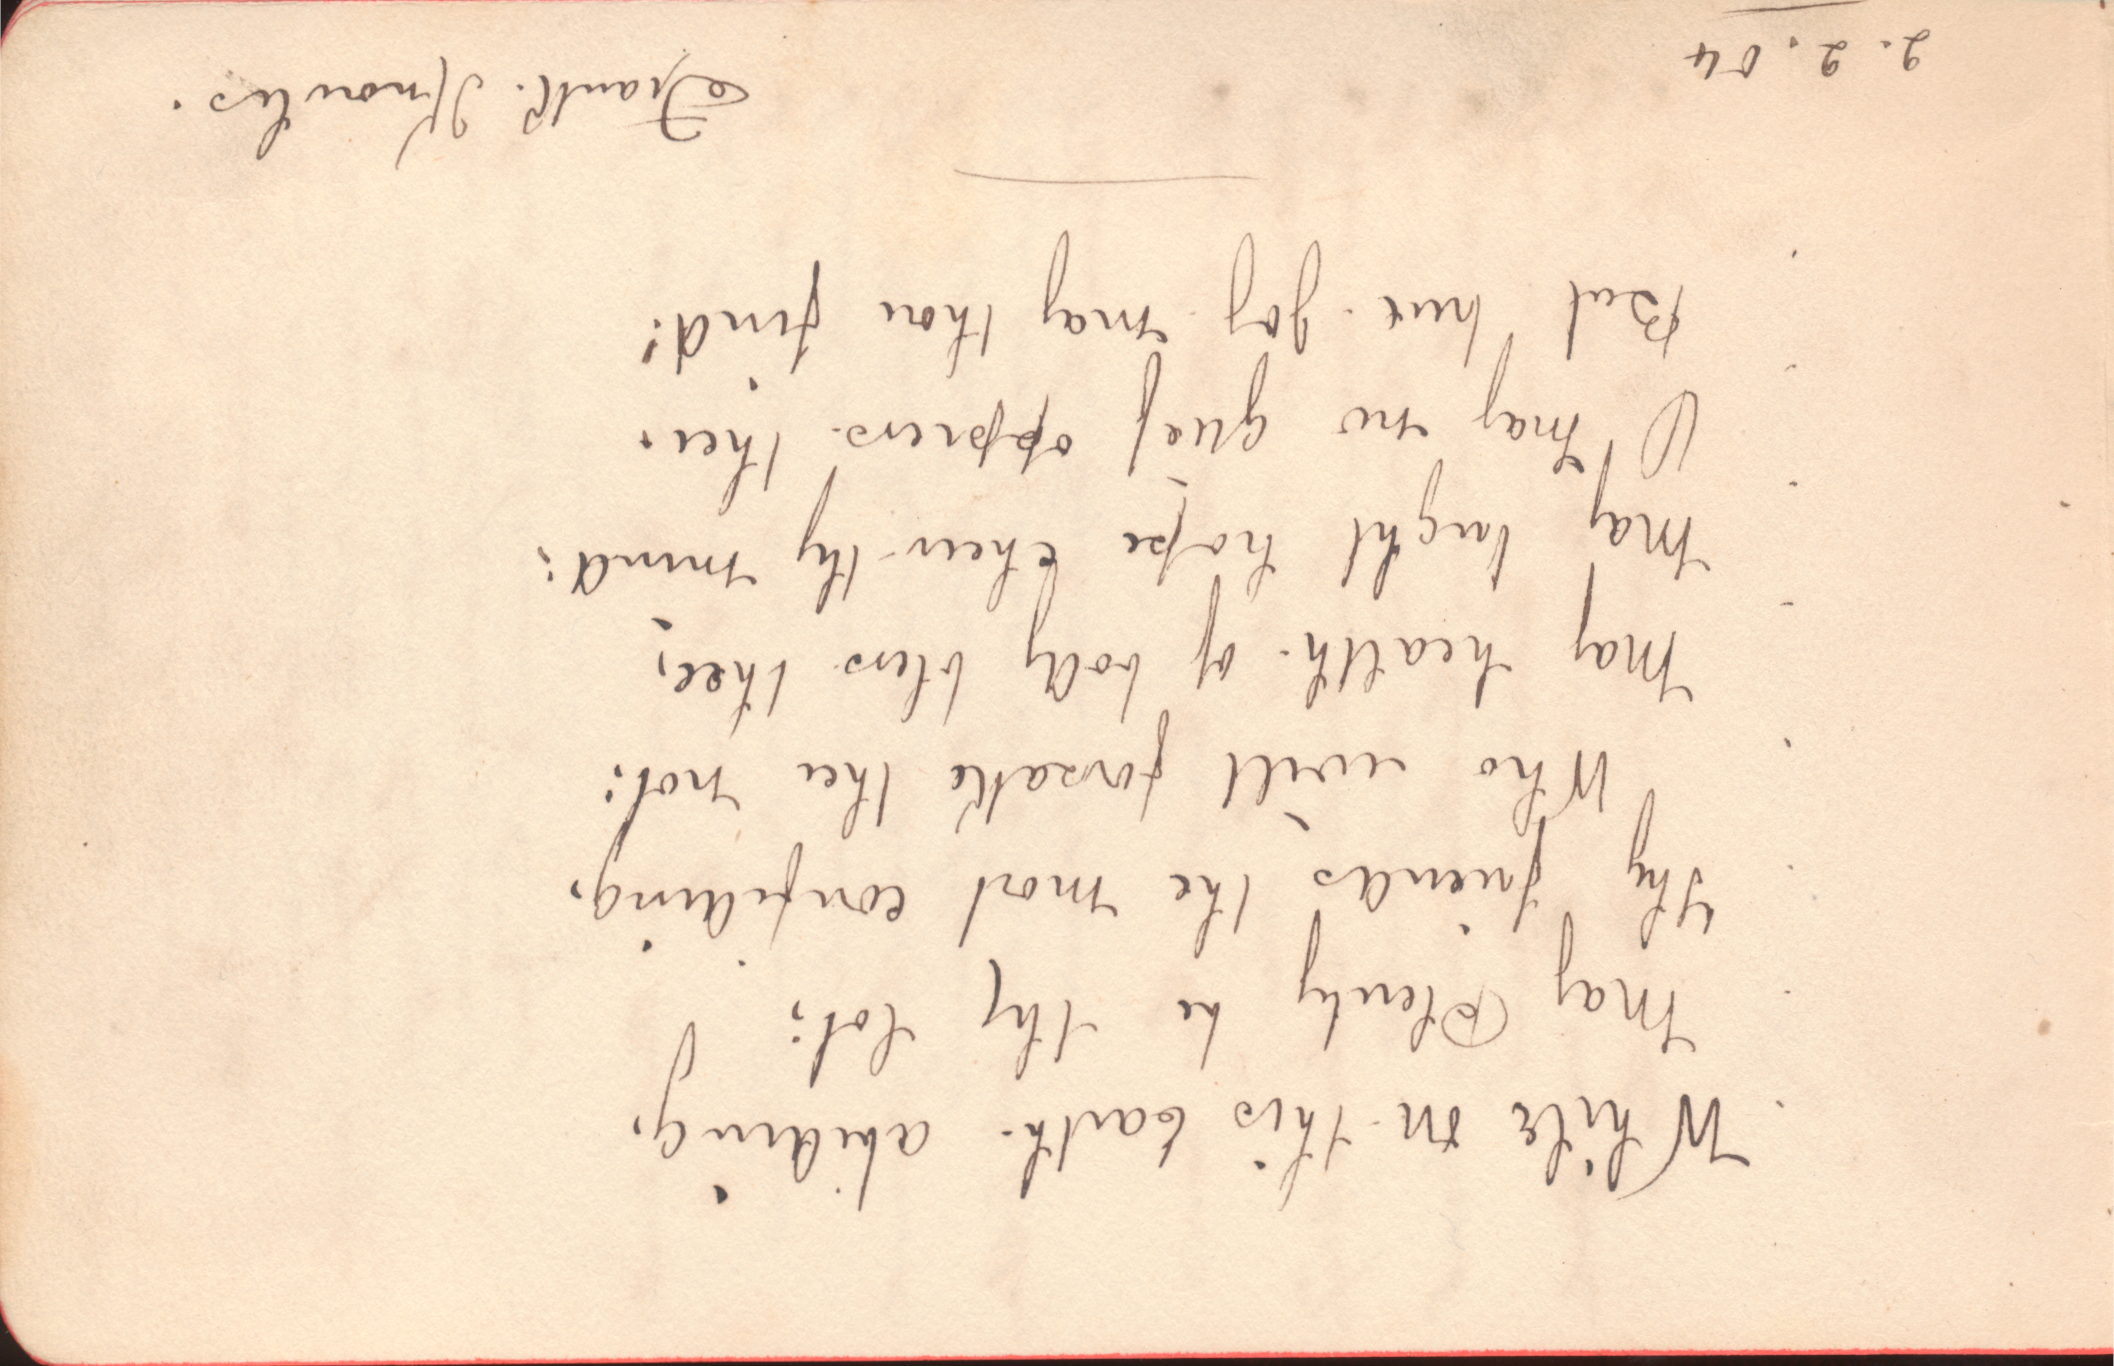 While on this Earth abiding,
May Plenty be thy lot;
Thy friends the most confiding,
Who will forsake thee not:
May health of body bless thee,
May bright hope cheer thy mind:
O' may no grief oppress thee.
But true joy may thou find!
Frank. Knowles.
2. 2. 04